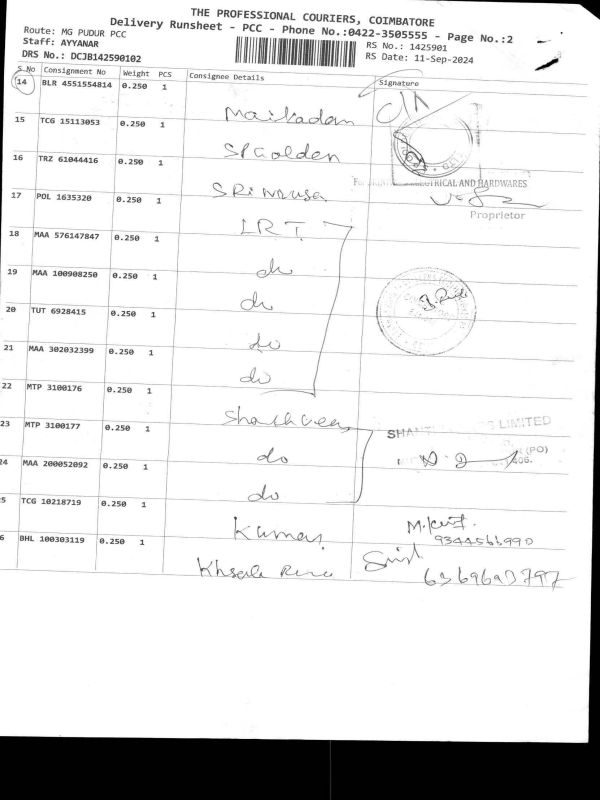 THE PROFESSIONAL COURIERS, COIMBATORE
Delivery Runsheet - PCC - Phone No.:0422-3505555 - Page No.:2
Route: MG PUDUR PCC
RS No.: 1425901
Staff: AYYANAR
RS Date: 11-Sep-2024
DRS No.: DCJB142590102
S No Consignment No Weight PCS Consignee Details Signature
14 BLR 4551554814 0.250 1
15 TCG 15113053 0.250 1
16 TRZ 61044416 0.250 1 SPGolden
17 POL 1635320 0.250 1
18 MAA 576147847 0.250 1 LRT
19 MAA 100908250 0.250 1 do
20 TUT 6928415 0.250 1 do
21 MAA 302032399 0.250 1 do
22 MTP 3100176 0.250 1 do
23 MTP 3100177 0.250 1
24 MAA 200052092 0.250 1 do
5 TCG 10218719 0.250 1 do
6 BHL 100303119 0.250 1 Kumar
ELECTRICAL AND HARDWARES
Proprietor
LIMITED
(PO)
406.
9344561990